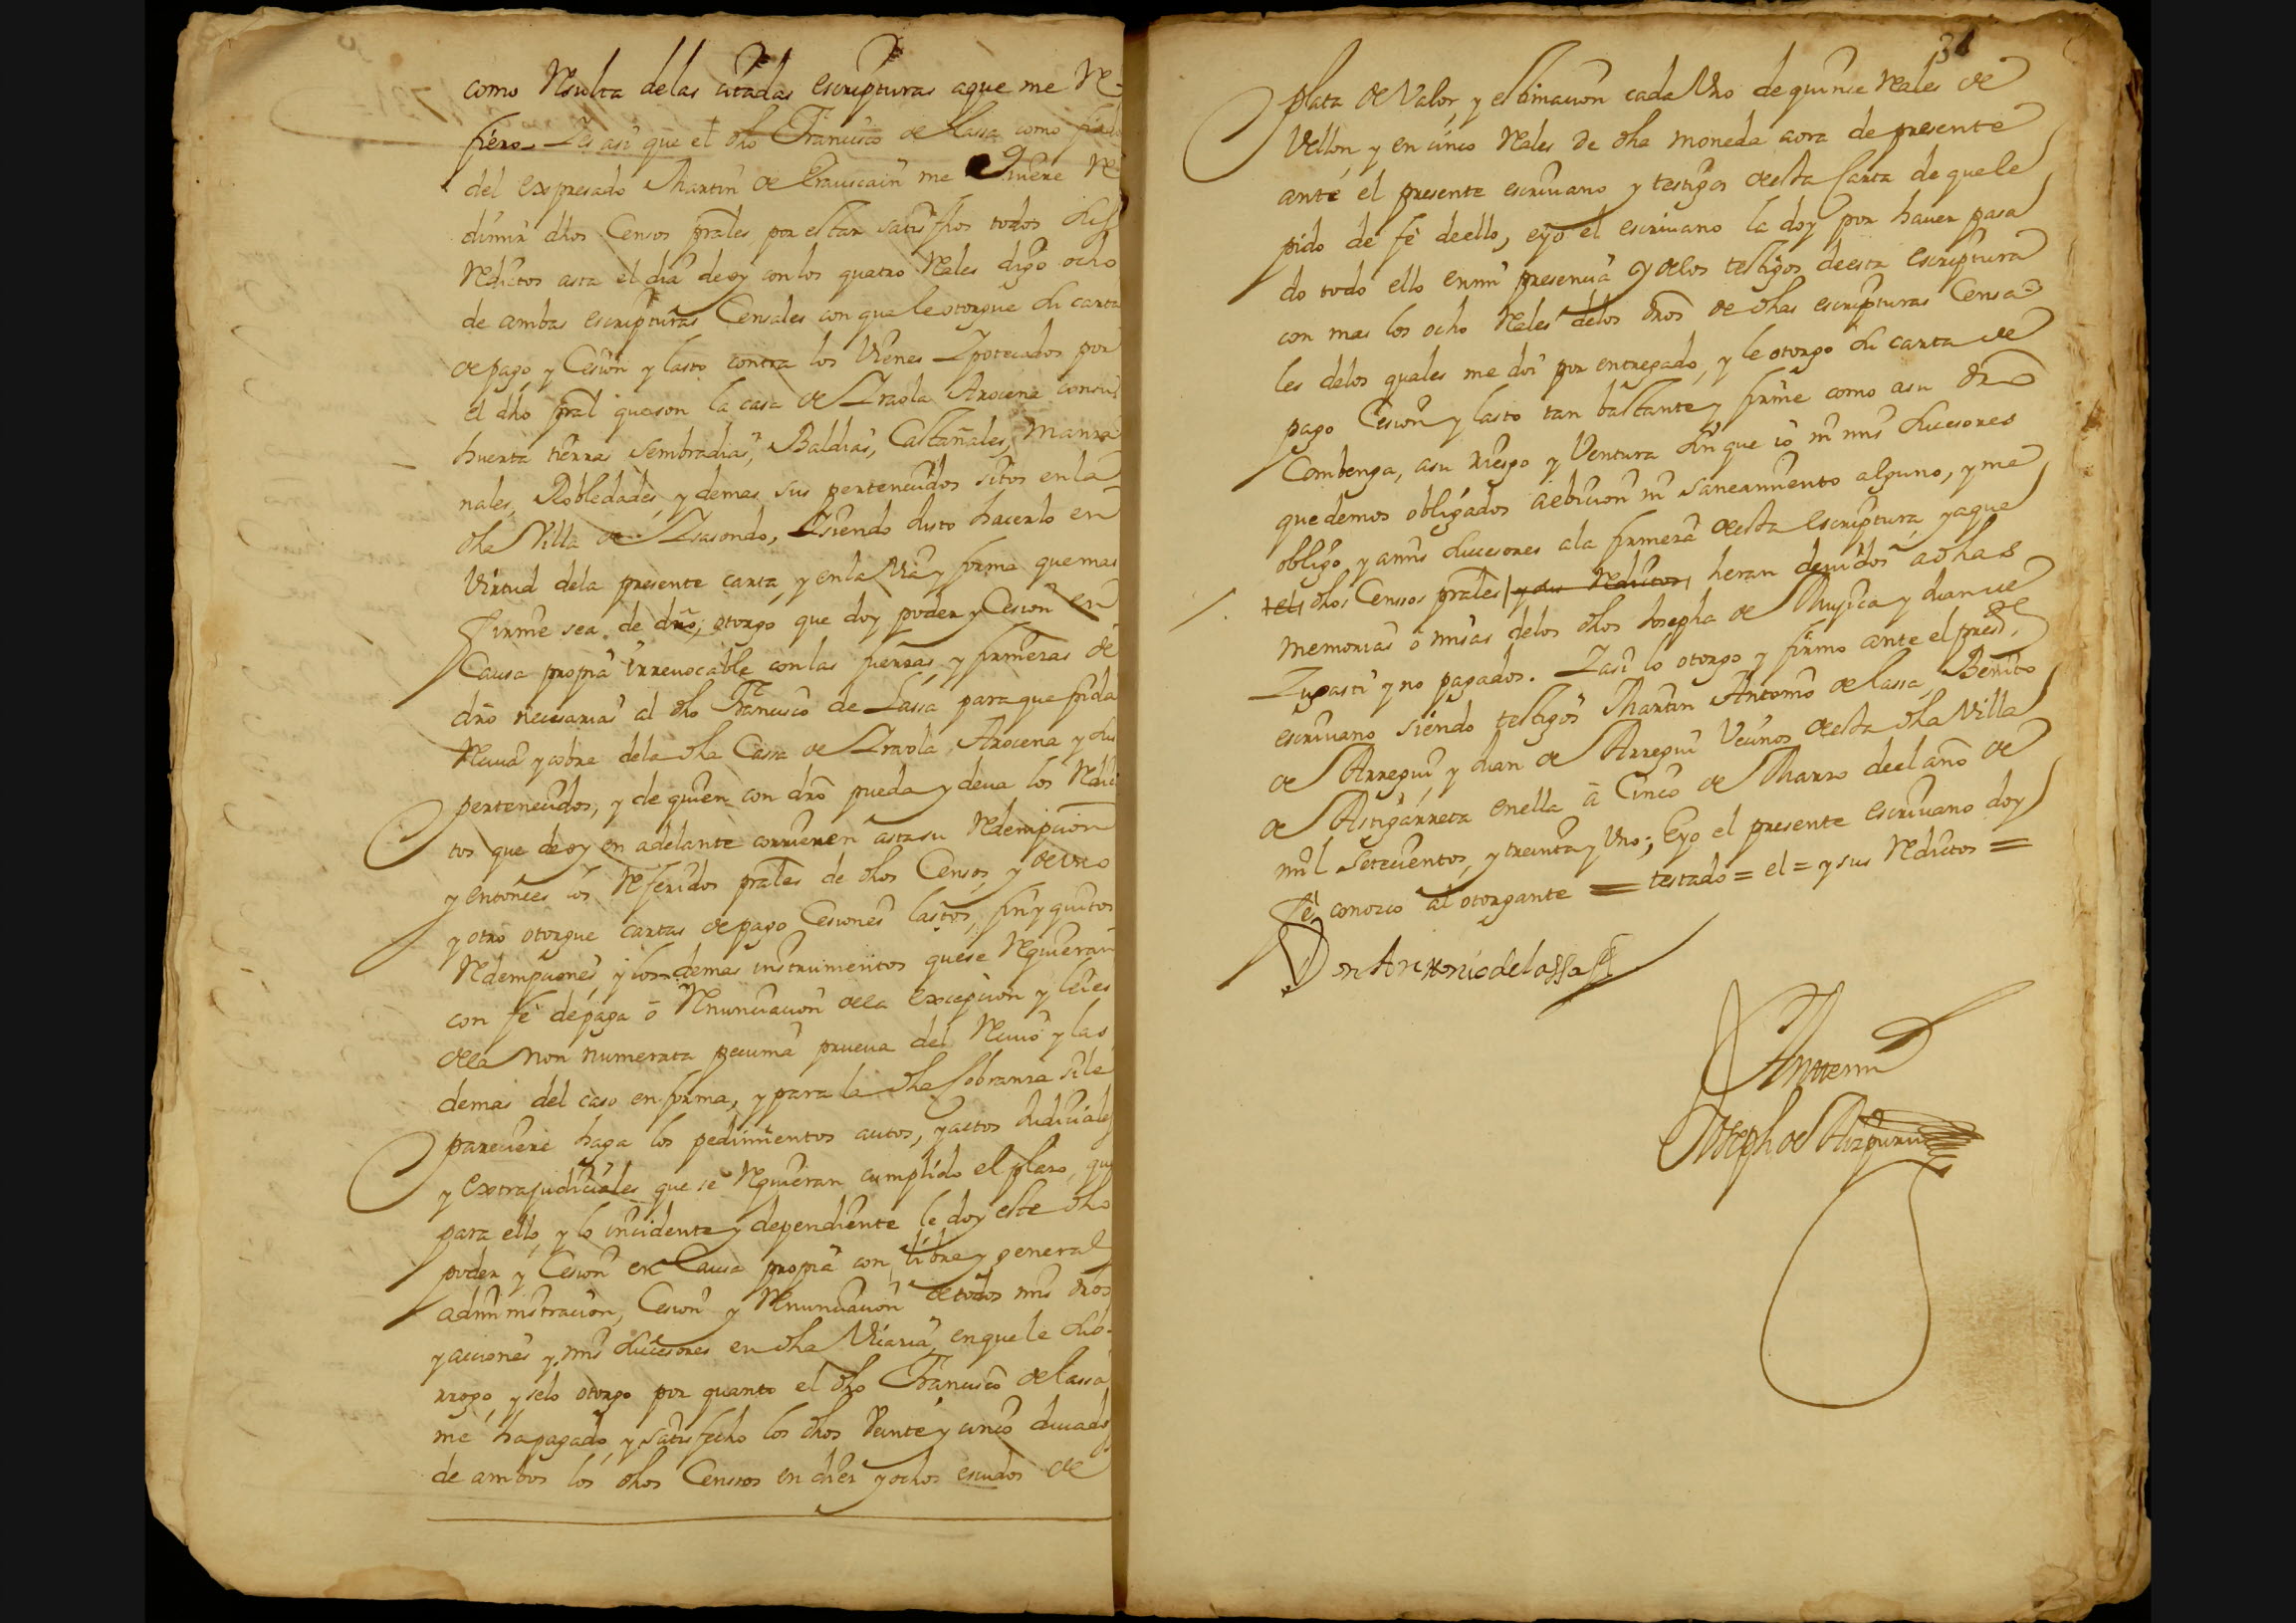 como Resulta delas citadas escripturas aque me Re
fiero. Y es asi que el dho Franco de Lassa como fiador
del expresado Martin de Erauscain me quiere Re
dimir dhos Censos prales por estar satisfhos todos sus
Reditos asta el dia deoy con los quatro Reales digo ocho
de ambas escripturas Censales con que le otorgue su carta
de pago y Cesion y lasto contra los Vienes Ypotecados por
el dho pral que son la casa de Yraola Arocena consu
huerta tierras sembradias, Baldias, Castañales, Manza
nales, Robledades, y demas sus pertenecidos sitos enla
dha Villa de Ysasondo, Y siendo Justo hacerlo en
Virtud dela presente carta, y enla Via y forma que mas
firme sea de dro, otorgo que doy poder y Cesion en
Causa propia irrevocable con las fuerzas, y firmezas de
dro necesarias al dho Franco de Lassa para que pida
Reciva y cobre dela dha Cassa de Yraola Arocena y sus
pertenecidos, y de quien con dro pueda y deva los Redi
tos que deoy en adelante corrieren asta su Redempcion
y entonces los Referidos prales de dhos Censos, y de uno
y otro otorgue cartas de pago Cesiones lastos, finiquitos
Redempciones, y los demas instrumentos que se Requieran
con fe depaga o Renunciacion dela excepcion y leies
dela non numerata pecunia prueva del Recivo y las
demas del caso en forma, y para la dha Cobranza si le
pareciere haga los pedimientos autos, y actos Judiciales
y extrajudiciales que se Requieran cumplido el plazo, que
para ello, y lo incidente y dependiente le doy este dho
poder y Cesion en Causa propia con libre y general
administracion, Cesion y Renunciacion de todos mis dros
y acciones y mis sucesores en dha Vicaria, en que le sub
rrogo, y selo otorgo por quanto el dho Franco de Lassa
me ha pagado, y satisfecho los dhos Veinte y cinco ducados
de ambos los dhos Censsos en diez y ochos escudos de
34
plata de Valor, y estimacion cada Uno de quinse Reales de
Vellon, y en cinco Reales de dha moneda aora de presente
ante el presente escrivano y testigos desta Carta de que le
pido de fe deello, e yo el escrivano la doy por haver pasa
do todo ello enmi presencia y delos testigos deesta escriptura
con mas los ocho Reales delos dros de dhas escripturas Censa
les delos quales me doi por entregado, y le otorgo su carta de
pago Cesion y lasto tan bastante y firme como asu dro
Combenga, asu riesgo y Ventura sin que io ni mis sucesores
quedemos obligados aebiccion ni saneamiento alguno, y me
obligo y amis sucesores ala firmeza desta escriptura, y aque
el dhos Censsos prales y sus Reditos heran devidos adhas
memorias o misas delos dhos Josepha de Mugica y Juan de
Zupasti y no pagados. Y asi lo otorgo y firmo ante el presde
escrivano siendo testigos Martin Antonio de Lassa, Benito
de Arregui, y Juan de Arregui Vecinos desta dha Villa
de Astigarreta enella a Cinco de Marzo deel año de
mil Setecientos, y treinta y Uno; E yo el presente escrivano doy
fe, conozco al otorgante = testado = el = y sus Reditos =
Don Antonio de lassa
Antemi
Joseph de Aizpuru